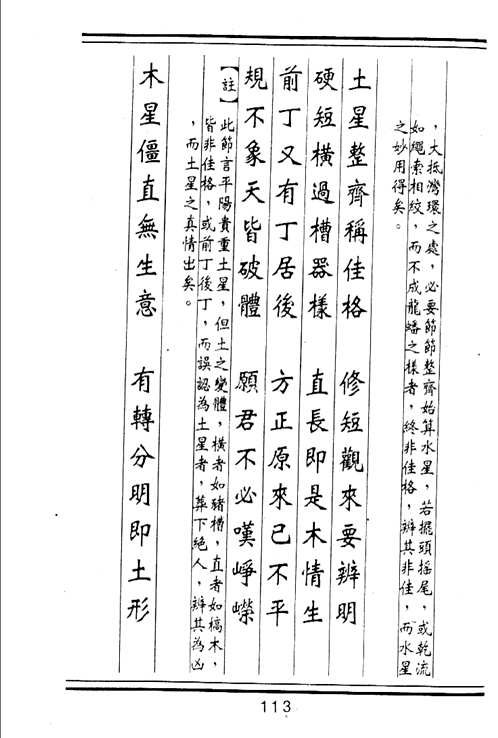 ，大抵灣環之處，必要節節整齊始算水星，若擺頭搖尾，或乾流
如繩索相絞，而不成龍蟠之樣者，終非佳格，辨其非佳，而水星
之妙用得矣。
土星整齊稱佳格　修短觀來要辨明
硬短橫過槽器樣　直長即是木情生
前丁又有丁居後　方正原來已不平
規不象天皆破體　願君不必嘆崢嶸
【註】此節言平陽貴重土星，但土之變體，橫者如豬槽，直者如槁木，
皆非佳格，或前丁後丁，而誤認為土星者，葬下絕人，辨其為凶
，而土星之真情出矣。
木星僵直無生意　有轉分明即土形
113